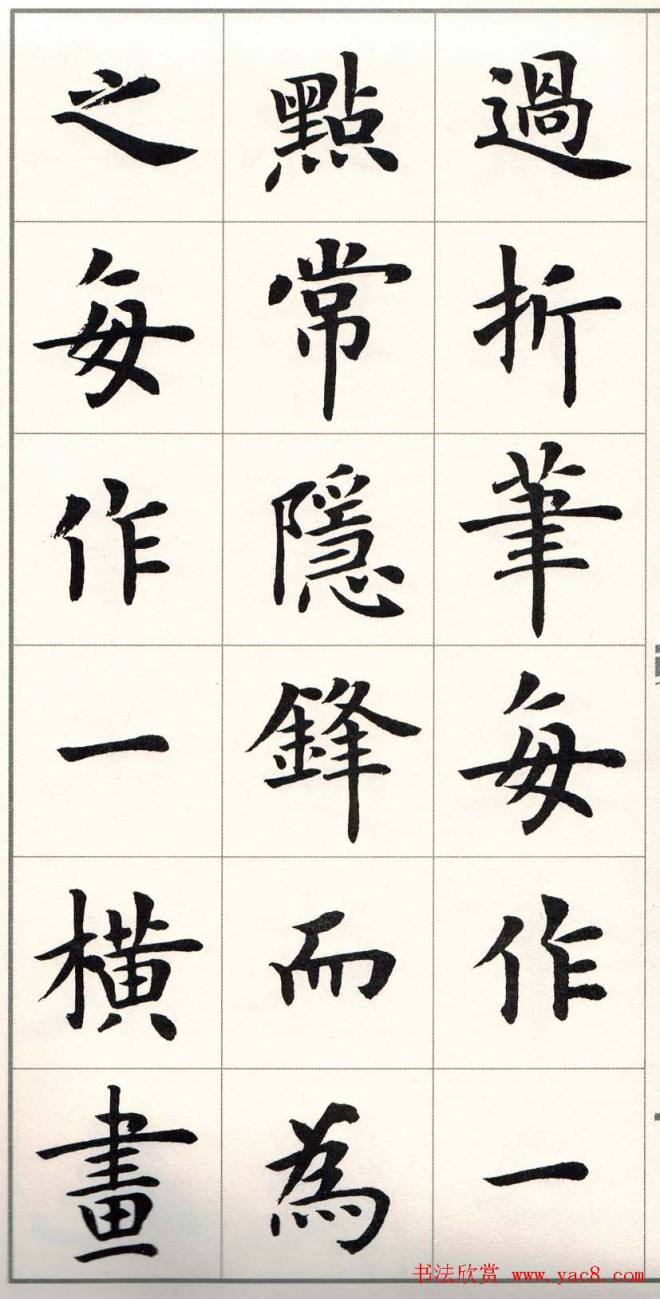 過折筆每作一
點常隱鋒而為
之每作一橫畫
书法欣赏 www.yac8.com